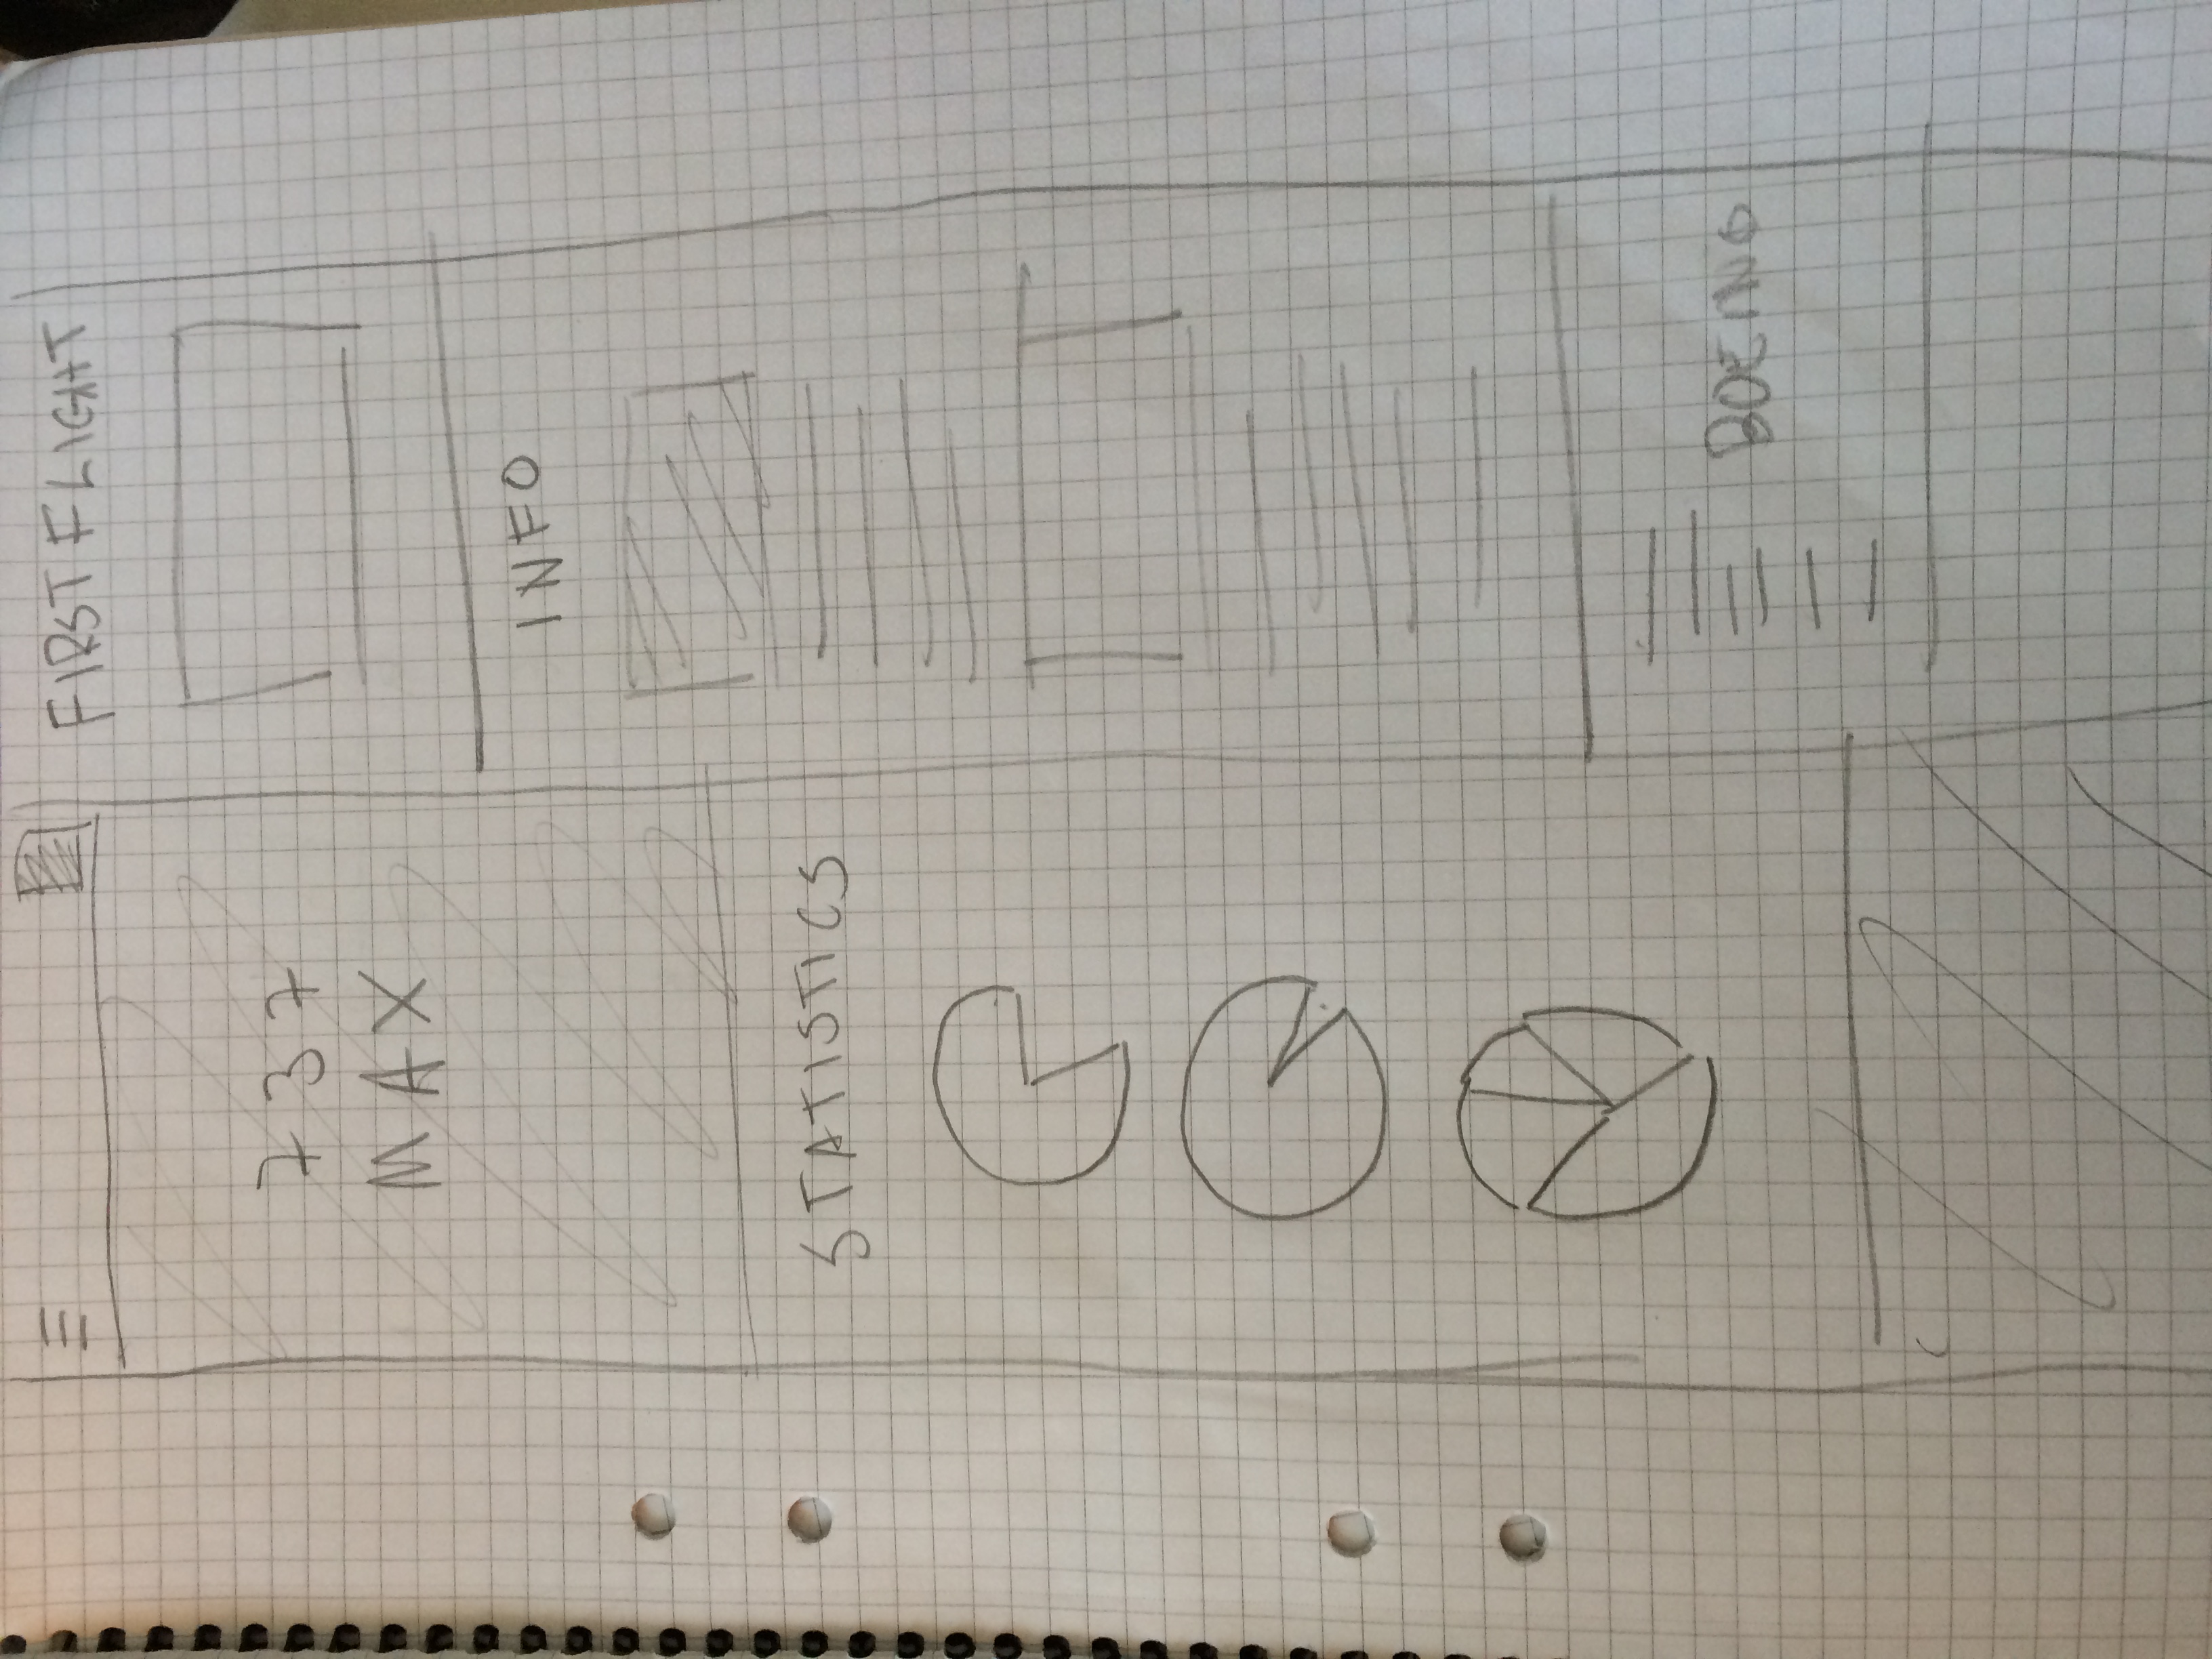 737
MAX
STATISTICS
FIRST FLIGHT
INFO
BOEING